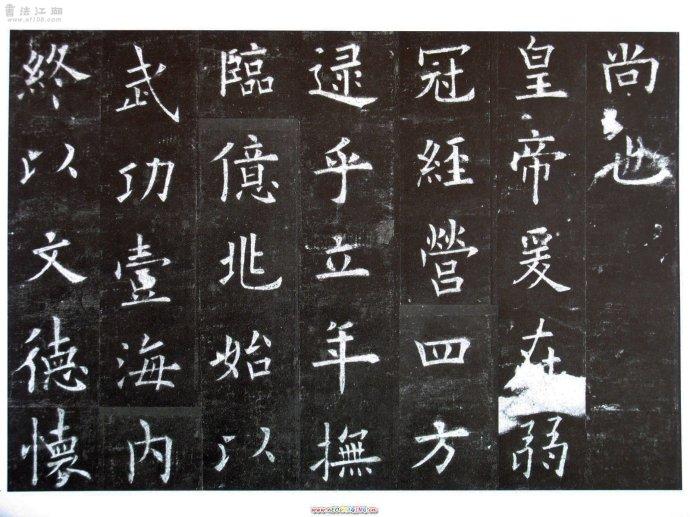 書法江湖
www.sf108.com
尚也
皇帝爰在弱
冠經營四方
逮乎立年撫
臨億兆始以
武功壹海內
終以文德懷